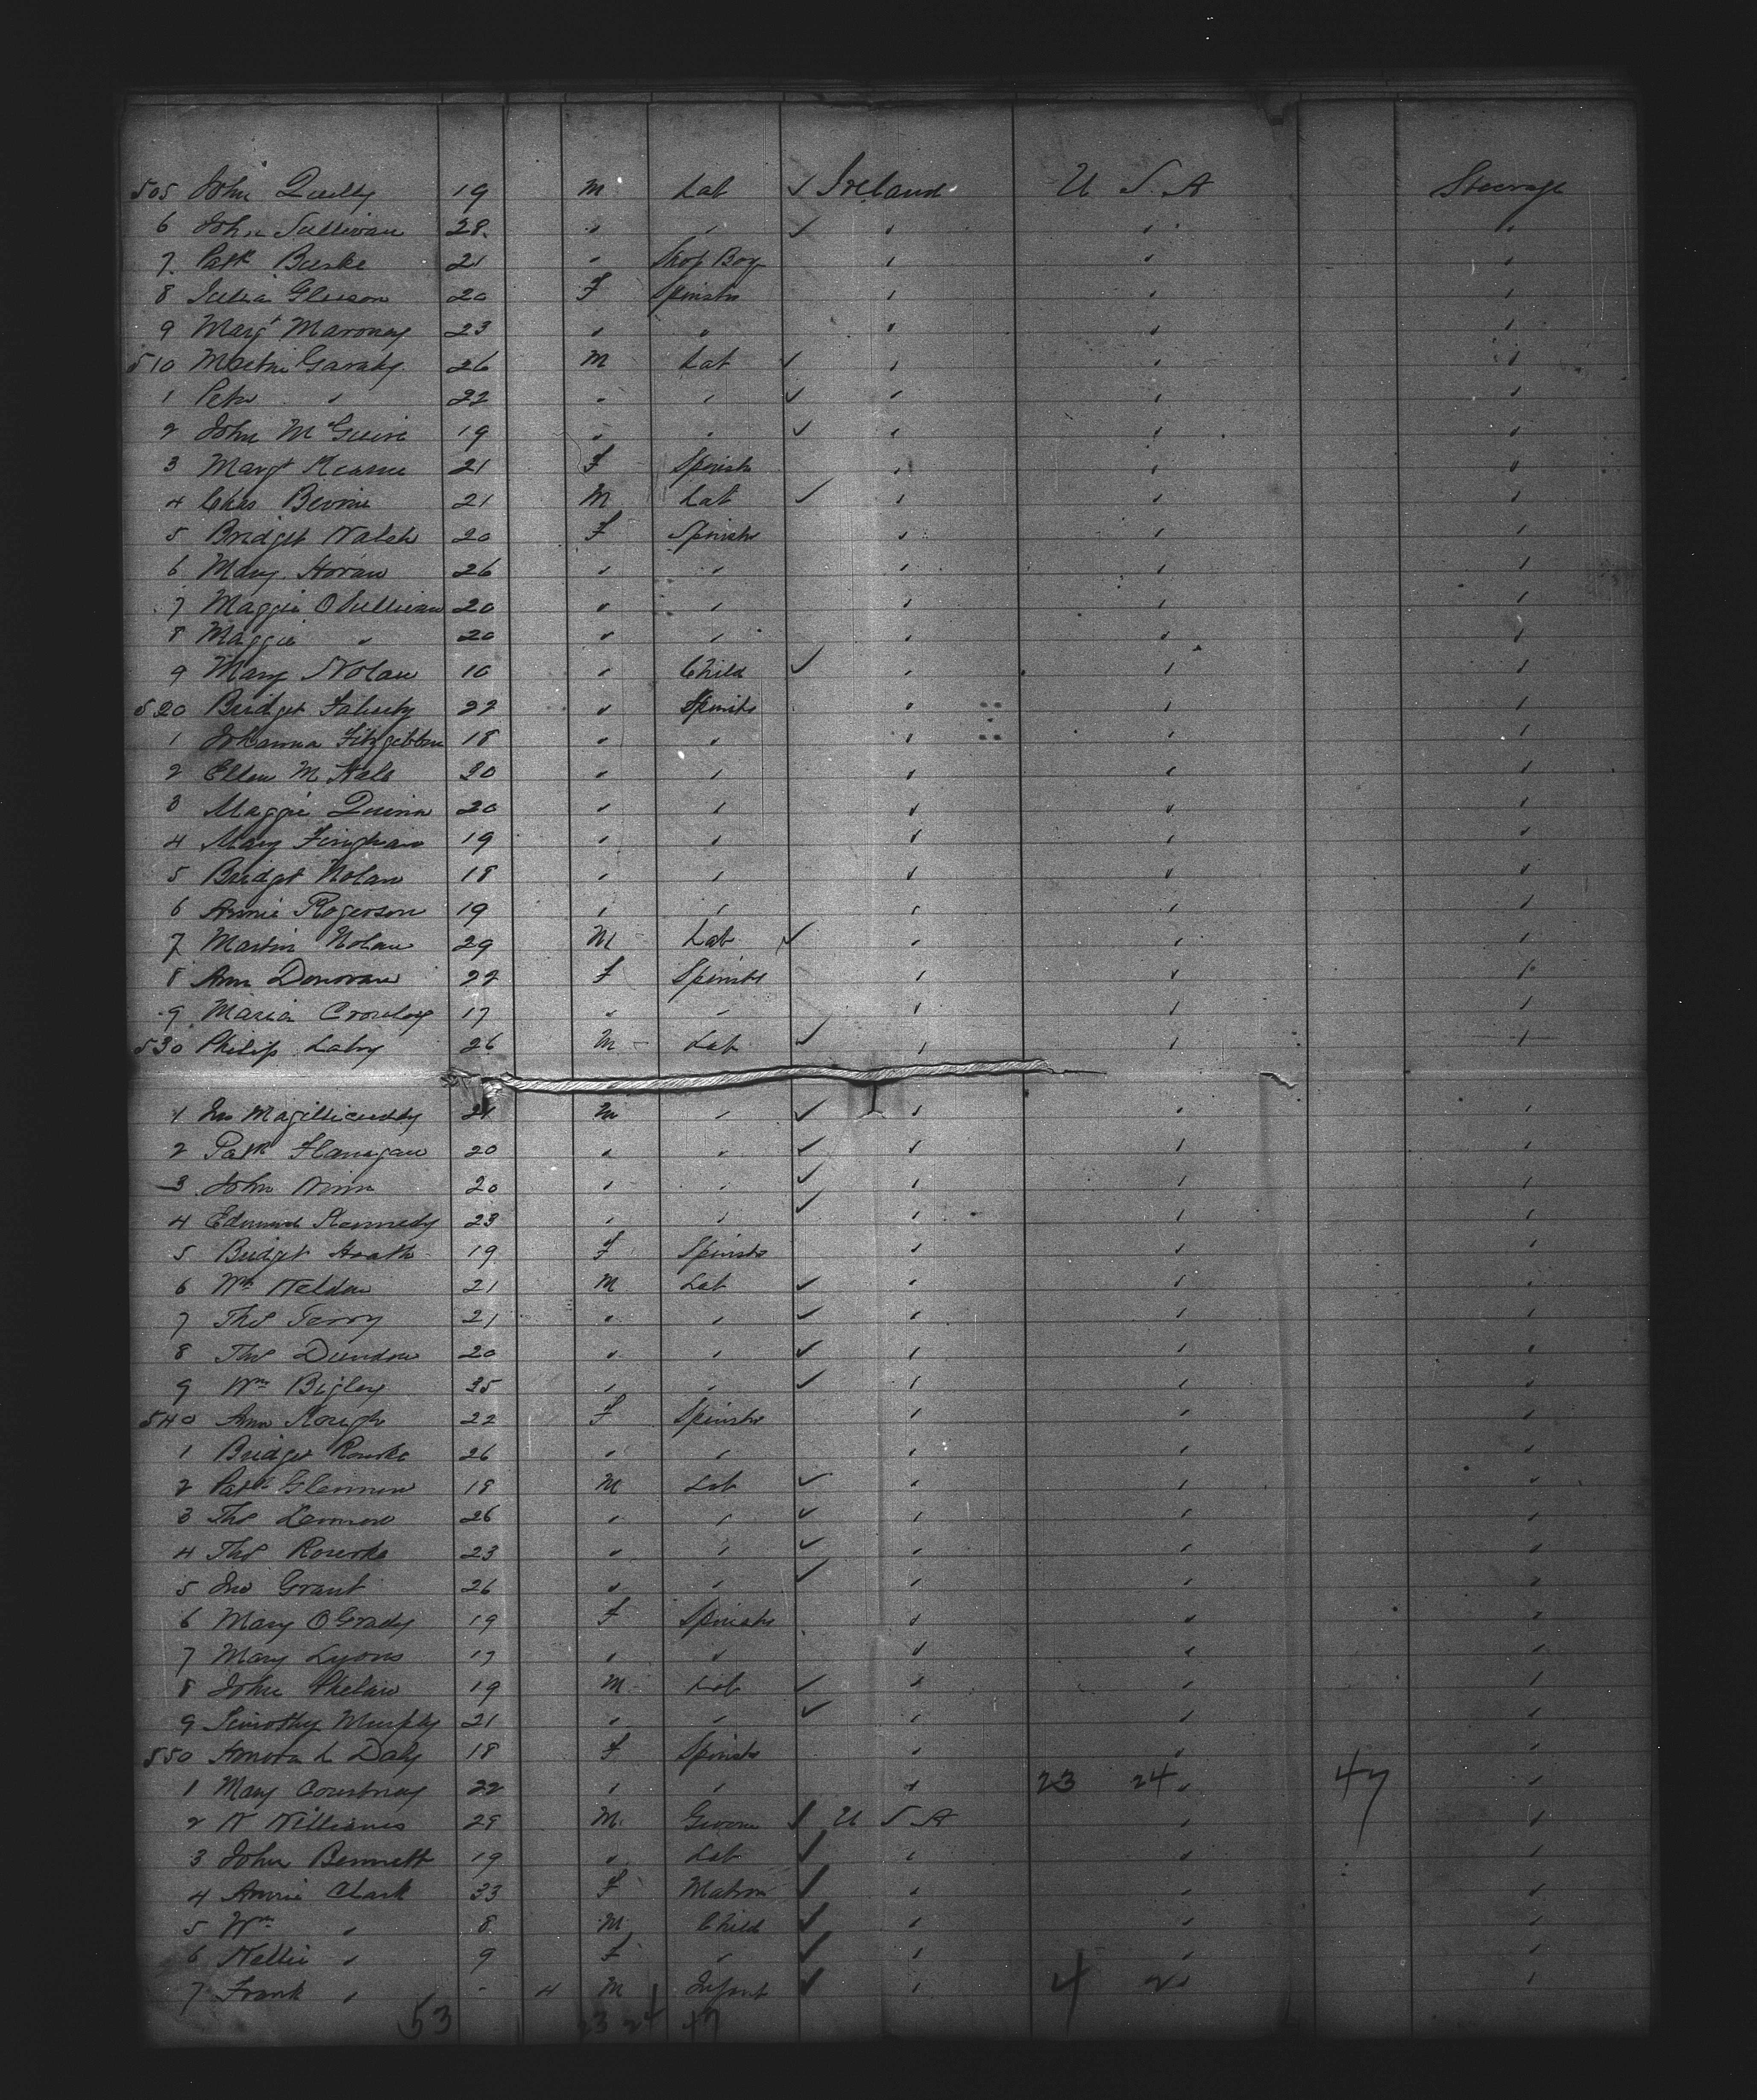 505 John Quilty 19 M Lab ✓ Ireland U S A Steerage
6 John Sullivan 28 " " ✓ " " "
7 Patk Burke 21 " Shop Boy " " "
8 Julia Gleeson 20 F Spinster " " "
9 Margt Maroney 23 " " " " "
510 Martin Garahy 26 M Lab ✓ " " "
1 Peter " 22 " " ✓ " " "
2 John McGuire 19 " " ✓ " " "
3 Margt Kearne 21 F Spinster " " "
4 Chas 21 M Lab ✓ " " "
5 Bridget Walsh 20 F Spinster " " "
6 Mary Horan 26 " " " " "
7 Maggie O Sullivan 20 " " " " "
8 Maggie " 20 " " " " "
9 Mary Nolan 10 " Child ✓ " " "
520 Bridget Faherty 22 " Spinster " " "
1 Johanna Fitzgibbon 18 " " " " "
2 Ellen 20 " " " " "
3 Maggie Quinn 20 " " " " "
4 Mary 19 " " " " "
5 Bridget Nolan 18 " " " " "
6 Annie Rogerson 19 " " " " "
7 Martin Nolan 29 M Lab ✓ " " "
8 Ann Donovan 22 F Spinster " " "
9 Maria Crowley 17 " " " " "
530 Philip 26 M Lab ✓ " " "
1 Jno Magillicuddy 21 M " ✓ " " "
2 Patk Flanagan 20 " " ✓ " " "
3 John 20 " " ✓ " " "
4 Edmund Kennedy 23 " " ✓ " " "
5 Bridget 19 F Spinster " " "
6 Wm Weldon 21 M Lab ✓ " " "
7 Thos Terry 21 " " ✓ " " "
8 Thos Dundon 20 " " ✓ " " "
9 Wm Bigley 35 " " ✓ " " "
540 Ann Keough 22 F Spinster " " "
1 Bridget Rourke 26 " " " " "
2 Patk Glennon 18 M Lab ✓ " " "
3 Thos Lennon 26 " " ✓ " " "
4 Thos Rourke 23 " " ✓ " " "
5 Jno Grant 26 " " ✓ " " "
6 Mary O Grady 19 F Spinster " " "
7 Mary Lyons 17 " " " " "
8 John Phelan 19 M Lab ✓ " " "
9 Timothy Murphy 21 " " ✓ " " "
550 Daly 18 F Spinster " " "
1 Mary Courtney 22 " " " 23 24 " 47 "
2 W Williams 29 M Groom ✓ U S A " "
3 John Bennett 19 " Lab ✓ " " "
4 Annie Clark 33 F Matron ✓ " " "
5 Wm " 8 M Child ✓ " " "
6 Nellie " 9 F " ✓ " " "
7 Frank " - 4 M Infant ✓ " 4 2 " "
53 23 24 47